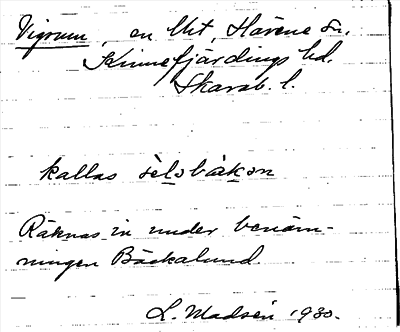 Vigrum, en lht, Härene sn.
Kinnefjärdings hd.
Skarab. l.
kallas
Räknas in under benäm-
ningen Bäckalund.
L. Madsén 1930.